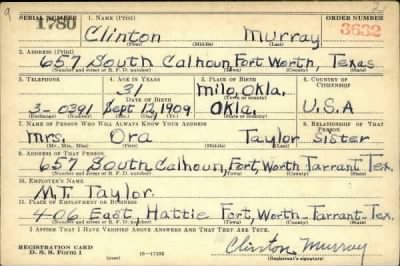 SERIAL NUMBER 1. NAME (Print) ORDER NUMBER
1780 Clinton Murray 3632
(First) (Middle) (Last)
2. ADDRESS (Print)
657 South Calhoun, Fort, Worth, Texas
(Number and street or R. F. D. number) (Town) (County) (State)
3. TELEPHONE 4. AGE IN YEARS 5. PLACE OF BIRTH 6. COUNTRY OF CITIZENSHIP
31 Milo, Okla.
DATE OF BIRTH
3-0391 Sept. 12, 1909 Okla. U.S.A
7. NAME OF PERSON WHO WILL ALWAYS KNOW YOUR ADDRESS 8. RELATIONSHIP OF THAT PERSON
Mrs. Ora Taylor Sister
(Mr., Mrs., Miss) (First) (Middle) (Last)
9. ADDRESS OF THAT PERSON
657 South Calhoun, Fort, Worth Tarrant Tex.
(Number and street or R. F. D. number) (Town) (County) (State)
10. EMPLOYER'S NAME
M.T. Taylor
11. PLACE OF EMPLOYMENT OR BUSINESS
406 East Hattie Fort, Worth Tarrant Tex.
(Number and street or R. F. D. number) (Town) (County) (State)
I AFFIRM THAT I HAVE VERIFIED ABOVE ANSWERS AND THAT THEY ARE TRUE.
REGISTRATION CARD
D. S. S. Form 1 (over) 16-17105 Clinton Murray
(Registrant's signature)